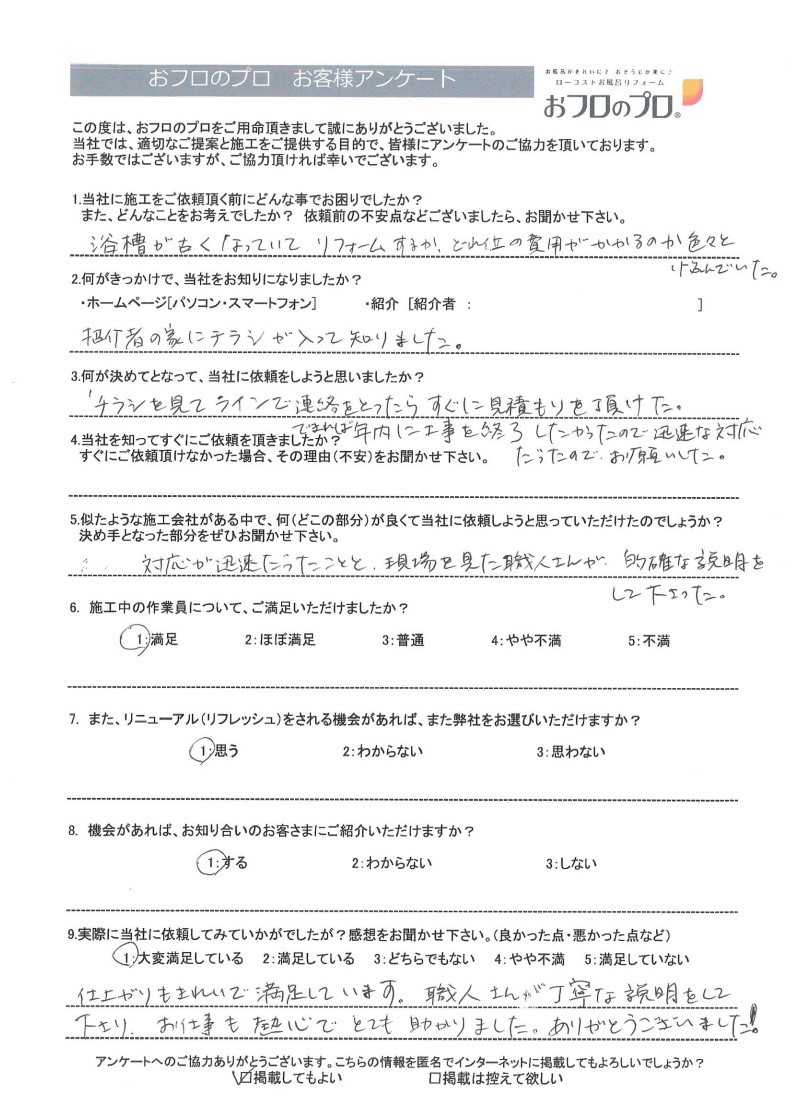 おフロのプロ　お客様アンケート
お風呂がきれいに♪ おそうじが楽に♪
ローコストお風呂リフォーム
おフロのプロ®
この度は、おフロのプロをご用命頂きまして誠にありがとうございました。
当社では、適切なご提案と施工をご提供する目的で、皆様にアンケートのご協力を頂いております。
お手数ではございますが、ご協力頂ければ幸いでございます。
1.当社に施工をご依頼頂く前にどんな事でお困りでしたか？
また、どんなことをお考えでしたか？ 依頼前の不安点などございましたら、お聞かせ下さい。
浴槽が古くなっていて リフォームするか、どれ位の費用がかかるのか色々と
んでいた。
2.何がきっかけで、当社をお知りになりましたか？
・ホームページ[パソコン・スマートフォン]　　・紹介 [紹介者 ：　　　　]
紹介者の家にチラシが入って知りました。
3.何が決めてとなって、当社に依頼をしようと思いましたか？
チラシを見てラインで連絡をとったらすぐに見積もりを頂けた。
できれば年内に工事を終了したかったので迅速な対応
4.当社を知ってすぐにご依頼を頂きましたか？
すぐにご依頼頂けなかった場合、その理由(不安)をお聞かせ下さい。
だったので、お願いした。
5.似たような施工会社がある中で、何(どこの部分)が良くて当社に依頼しようと思っていただけたのでしょうか？
決め手となった部分をぜひお聞かせ下さい。
対応が迅速だったことと、現場を見た職人さんが、的確な説明を
して下さった。
6. 施工中の作業員について、ご満足いただけましたか？
1:満足　2:ほぼ満足　3:普通　4:やや不満　5:不満
7. また、リニューアル(リフレッシュ)をされる機会があれば、また弊社をお選びいただけますか？
1:思う　2:わからない　3:思わない
8. 機会があれば、お知り合いのお客さまにご紹介いただけますか？
1:する　2:わからない　3:しない
9.実際に当社に依頼してみていかがでしたが？感想をお聞かせ下さい。(良かった点・悪かった点など)
1:大変満足している　2:満足している　3:どちらでもない　4:やや不満　5:満足していない
仕上がりもきれいで満足しています。職人さんが丁寧な説明をして
下さり、お仕事も熱心でとても助かりました。ありがとうございました!
アンケートへのご協力ありがとうございます。こちらの情報を匿名でインターネットに掲載してもよろしいでしょうか？
☑掲載してもよい　□掲載は控えて欲しい